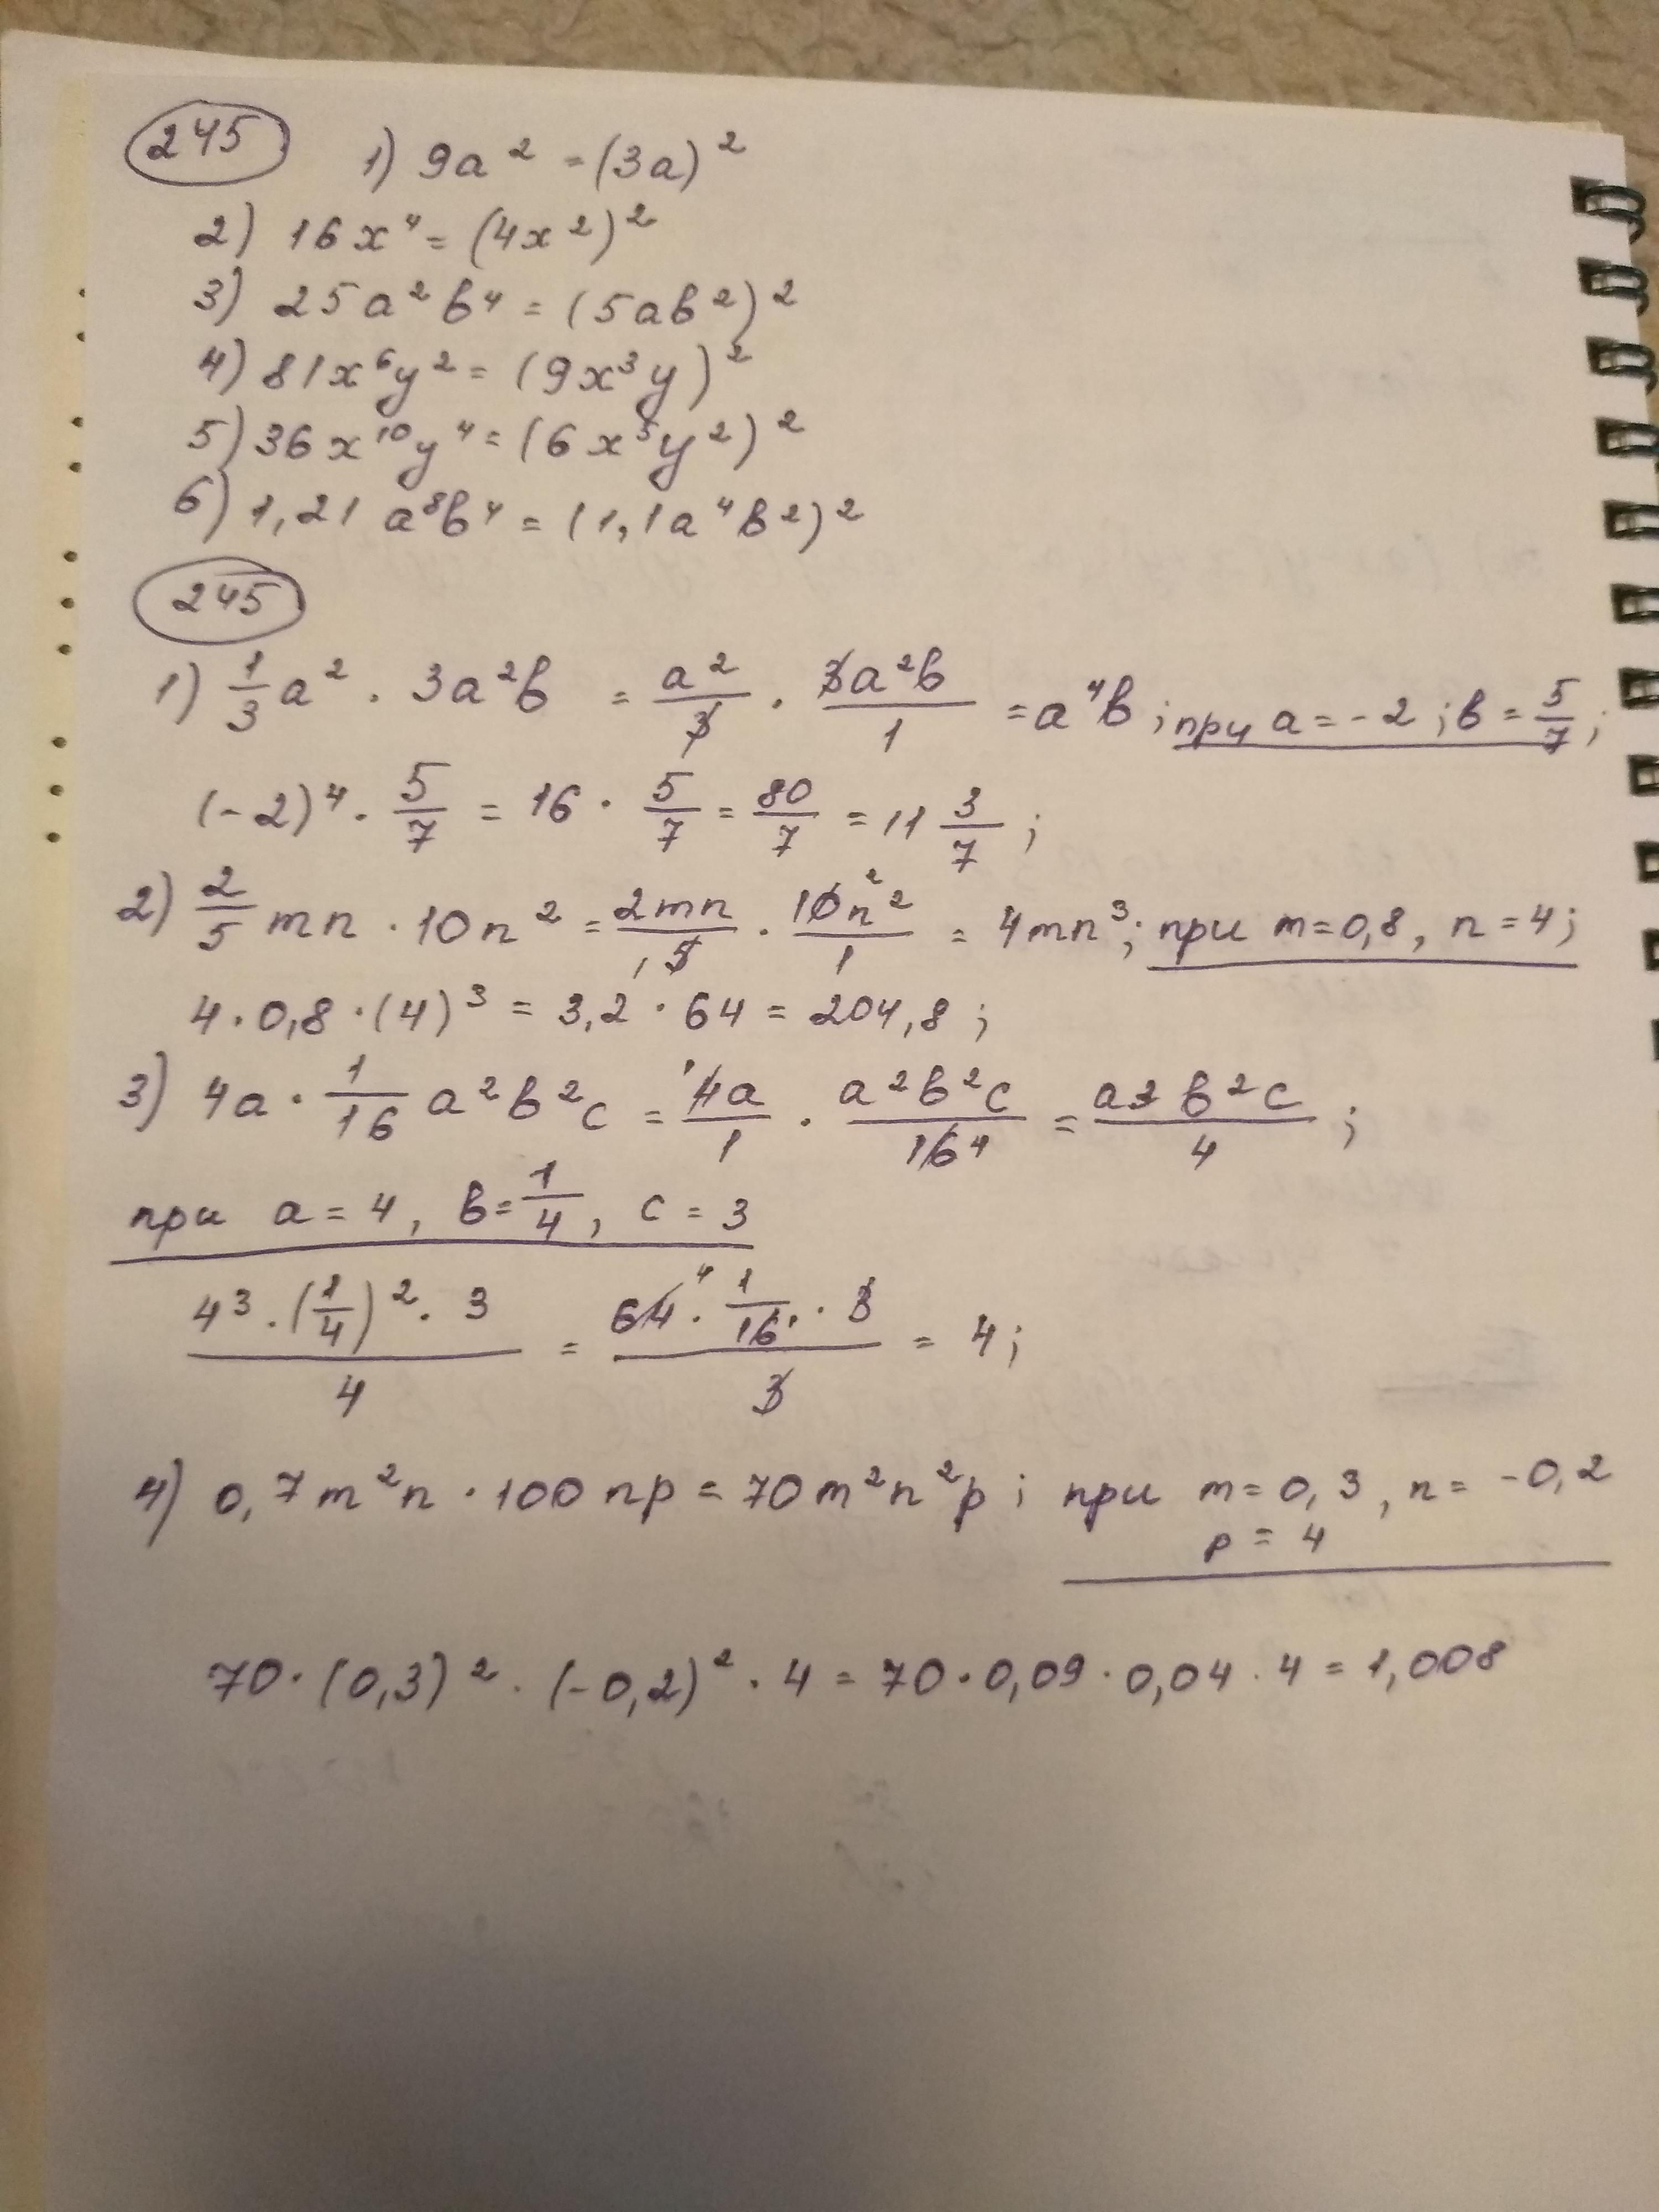 245 1) 9a² = (3a)²
2) 16x⁴ = (4x²)²
3) 25a²b⁴ = (5ab²)²
4) 81x⁶y² = (9x³y)²
5) 36x¹⁰y⁴ = (6x⁵y²)²
6) 1,21 a⁸b⁴ = (1,1a⁴b²)²
245
1) 1/3 a² · 3a²b = a²/3 · 3a²b/1 = a⁴b ; при a = -2 ; b = 5/7 ;
(-2)⁴ · 5/7 = 16 · 5/7 = 80/7 = 11 3/7 ;
2) 2/5 mn · 10n² = 2mn/5 1 · 10 2 n²/1 = 4mn³; при m=0,8, n=4;
4·0,8·(4)³ = 3,2·64 = 204,8 ;
3) 4a · 1/16 a²b²c = 1 4a/1 · a²b²c/16 4 = a³b²c/4 ;
при a = 4, b = 1/4, c = 3
4³·(1/4)²·3/4 = 64 4 · 1/16 1 · 3/3 = 4 ;
4) 0,7m²n · 100 np = 70m²n²p ; при m=0,3, n= -0,2
p = 4
70·(0,3)²·(-0,2)²·4 = 70·0,09·0,04·4 = 1,008